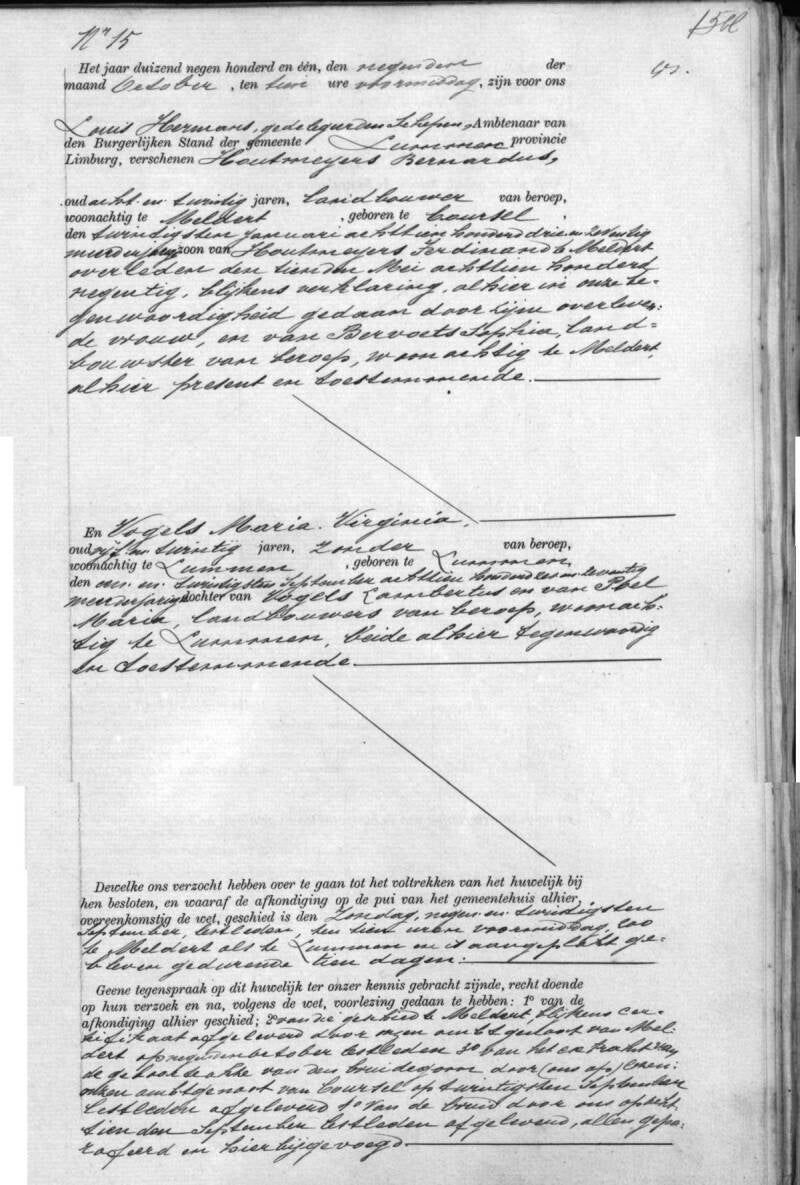 Nr 15
Het jaar duizend negen honderd en één, den negenden der
maand October, ten tien ure voormiddag, zijn voor ons
Louis Hermans, gedelegeerden Schepen, Ambtenaar van
den Burgerlijken Stand der gemeente Lummen provincie
Limburg, verschenen Houtmeyers Bernardus,
oud acht en twintig jaren, landbouwer van beroep,
woonachtig te Meldert, geboren te Coursel,
den twintigsten Januari achttien honderd drie en zeventig
meerderjarige zoon van Houtmeyers Ferdinand te Meldert
overleden den tienden Mei achttien honderd
negentig, blijkens verklaring, alhier in onze te-
genwoordigheid gedaan door zijne overleven-
de vrouw, en van Bervoets Sophia, land-
bouwster van beroep, woonachtig te Meldert,
alhier present en toestemmende.
En Vogels Maria Virginia,
oud vijf en twintig jaren, zonder van beroep,
woonachtig te Lummen, geboren te Lummen,
den een en twintigsten September achttien honderd zes en zeventig
meerderjarige dochter van Vogels Lambertus en van
Maria, landbouwers van beroep, woonach-
tig te Lummen, beide alhier tegenwoordig
en toestemmende.
Dewelke ons verzocht hebben over te gaan tot het voltrekken van het huwelijk bij
hen besloten, en waaraf de afkondiging op de pui van het gemeentehuis alhier,
overeenkomstig de wet, geschied is den Zondag, negen en twintigsten
September, lestleden, ten tien uren voormiddag, zoo
te Meldert als te Lummen en is aangeplakt ge-
bleven gedurende tien dagen.
Geene tegenspraak op dit huwelijk ter onzer kennis gebracht zijnde, recht doende
op hun verzoek en na, volgens de wet, voorlezing gedaan te hebben: 1º van de
afkondiging alhier geschied; 2º van die geschied te Meldert, blijkens cer-
tifikaat afgeleverd door onzen ambtgenoot van Mel-
dert op negenden October lestleden 3º van het extrakt van
de geboorteakte van den bruidegom door (ons op)
onzen ambtgenoot van Coursel op twintigsten September
lestleden afgeleverd 4º van de bruid door ons op acht
tienden September lestleden afgeleverd, allen gepa-
rafeerd en hierbijgevoegd.